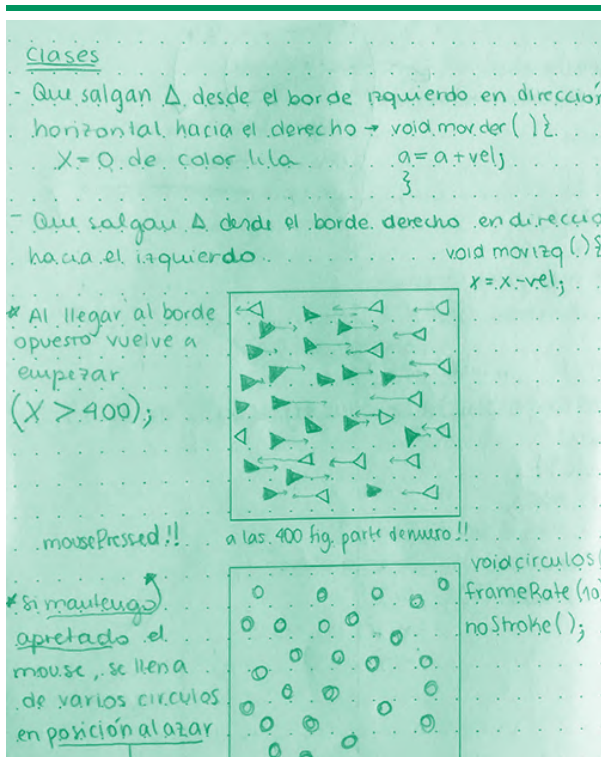 Clases
- Que salgan Δ desde el borde izquierdo en dirección
horizontal hacia el derecho → void movder ( ) {
X=0 de color lila
a = a + vel;
}
- Que salgan Δ desde el borde derecho en direcció
hacia el izquierdo
void movizq () {
x = x - vel;
* Al llegar al borde
opuesto vuelve a
empezar
(X > 400);
mousePressed!!
a las 400 fig. parte denuevo!!
void circulos(
frameRate (10)
noStroke();
* Si mantengo
apretado el
mouse, se llena
de varios circulos
en posición al azar